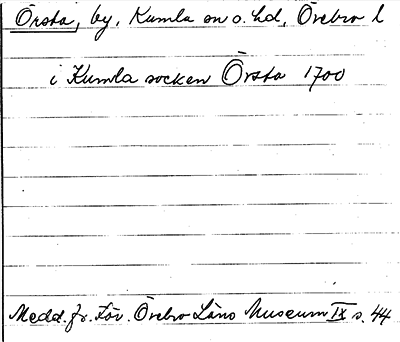 Örsta, by, Kumla sn o. hd, Örebro l
i Kumla socken Örsta 1700
Medd. fr. För. Örebro Läns Museum IX s. 44